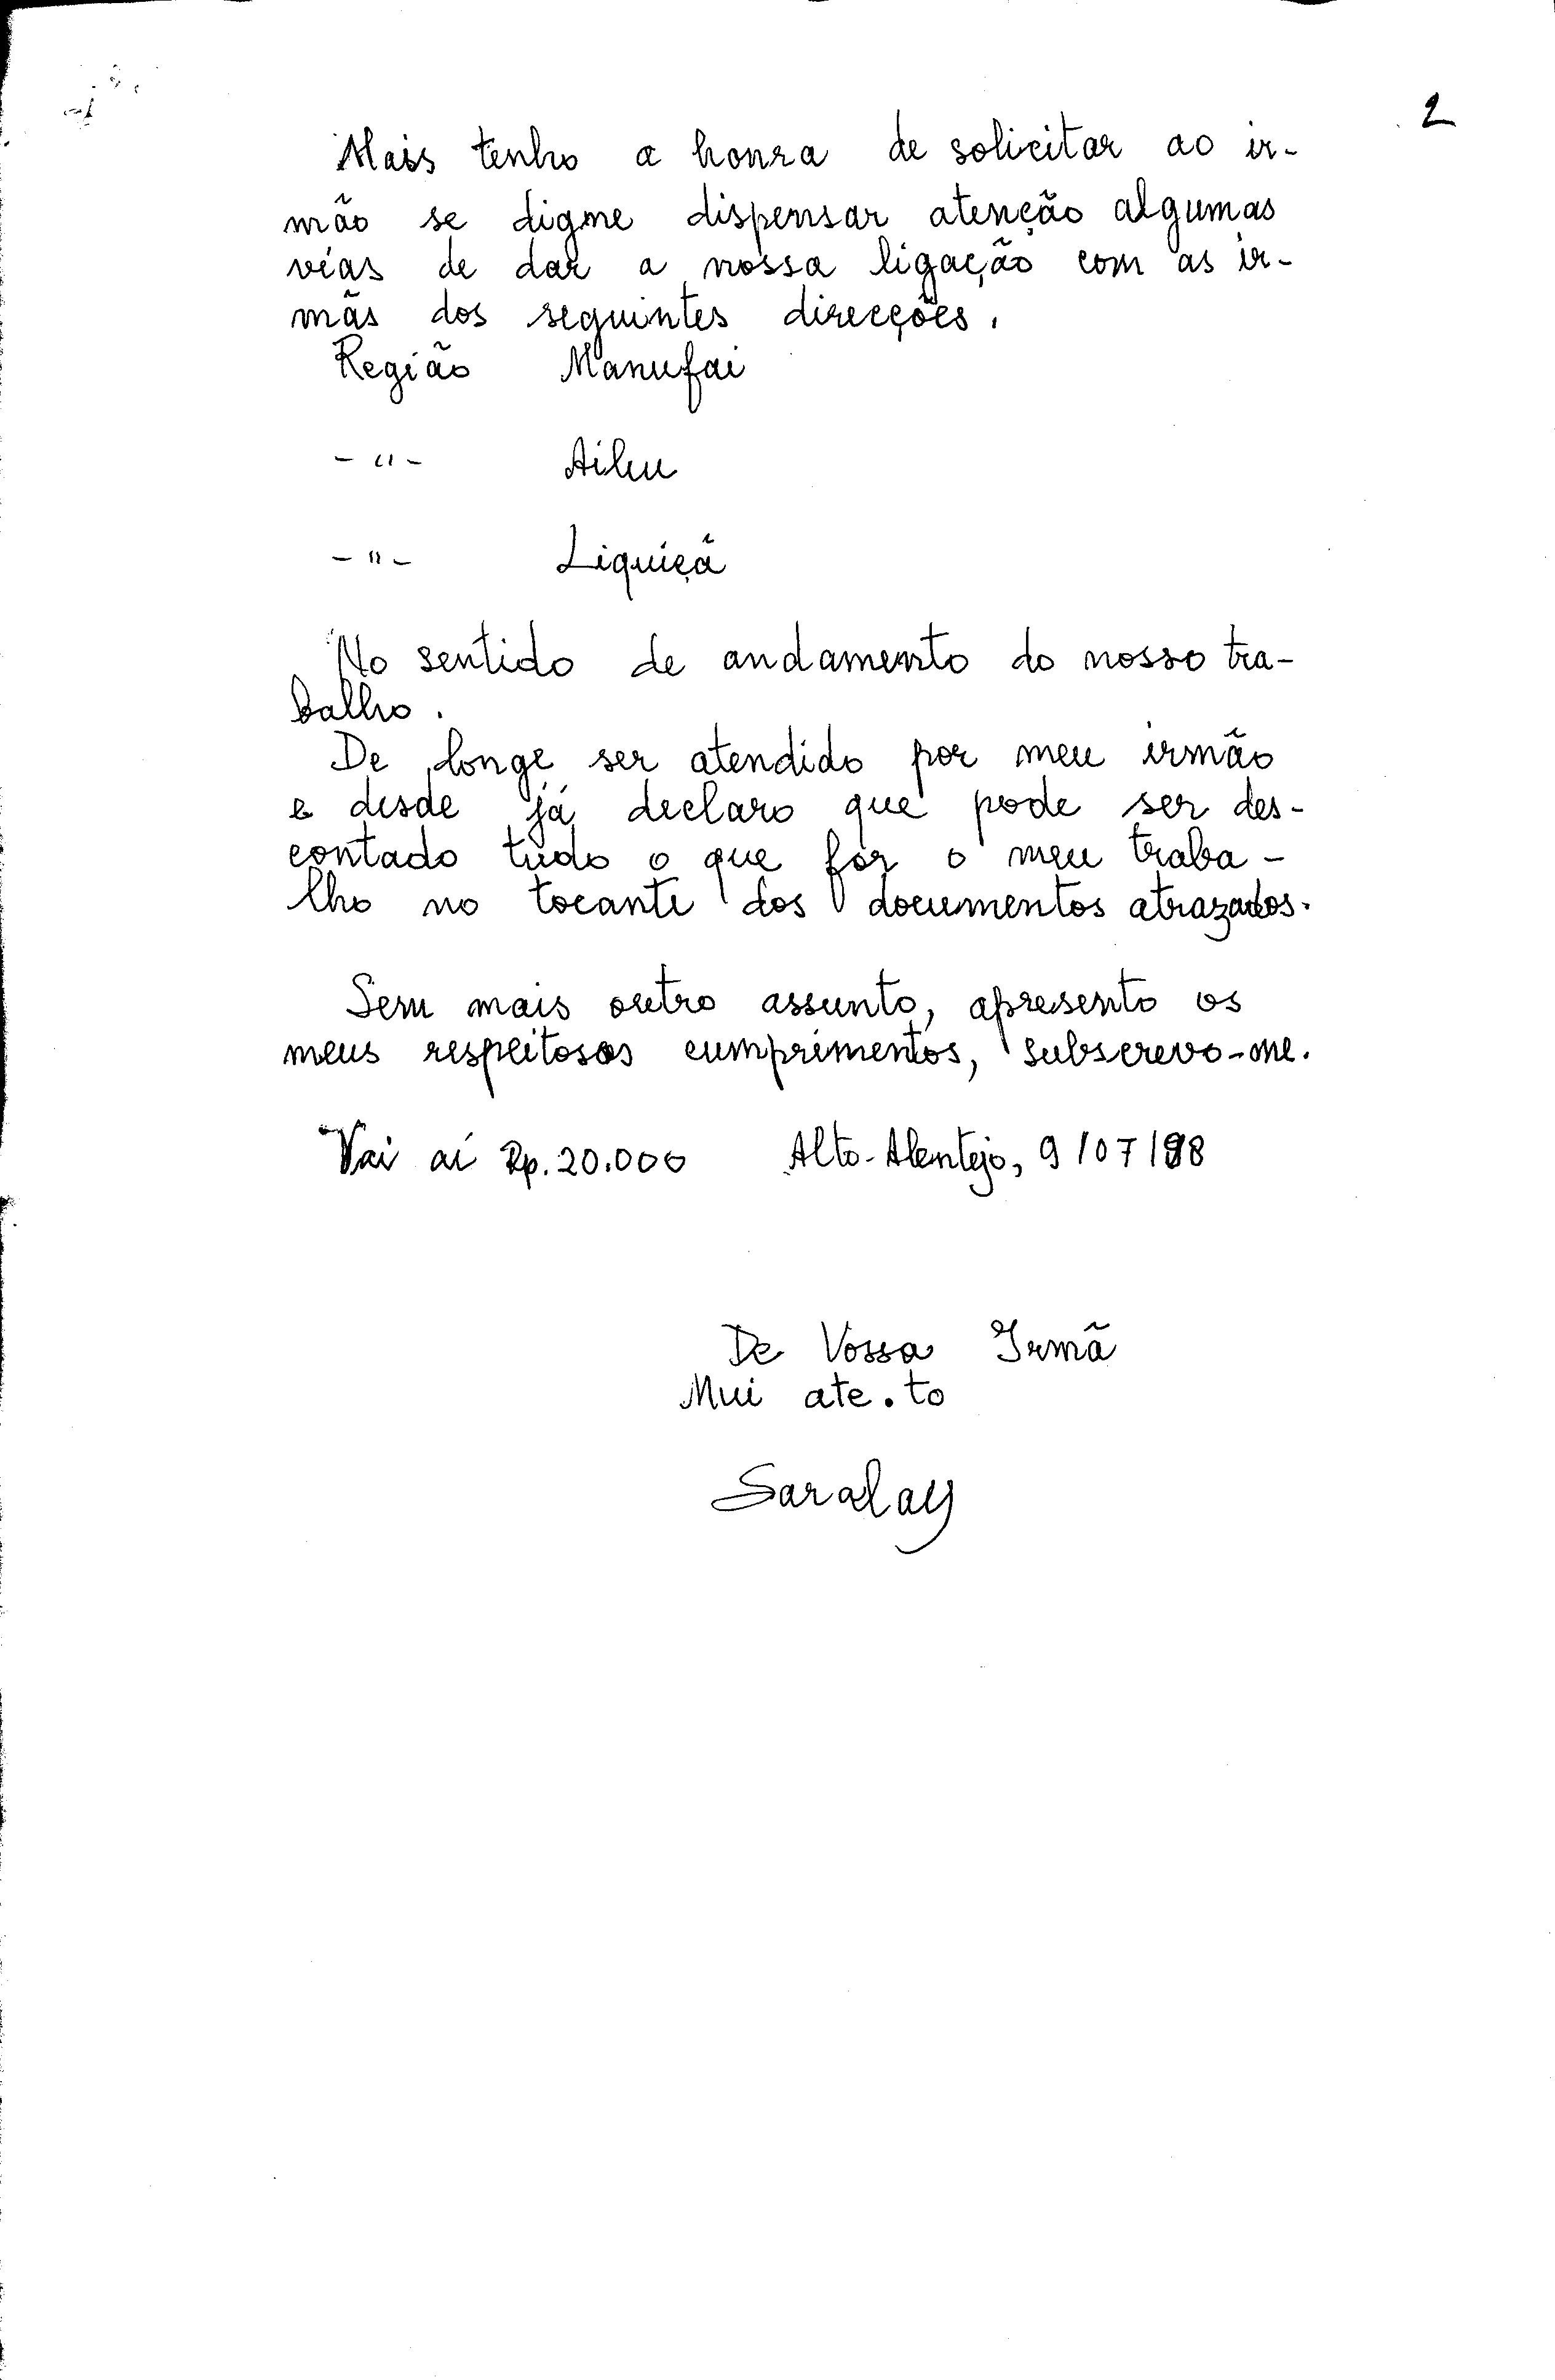 2
Mais tenho a honra de solicitar ao ir-
mão se digne dispensar atenção algumas
vias de dar a nossa ligação com as ir-
mãs dos seguintes direcções.
Região Manufai
- " - Aileu
- " - Liquiçã
No sentido de andamento do nosso tra-
balho.
De longe ser atendido por meu irmão
e desde já declaro que pode ser des-
contado tudo o que fôr o meu traba-
lho no tocante dos documentos atrazados.
Sem mais outro assunto, apresento os
meus respeitosos cumprimentos, subscrevo-me.
Vai aí Rp. 20.000 Alto-Alentejo, 9/07/98
De Vossa Irmã
Mui ate.to
Saralay